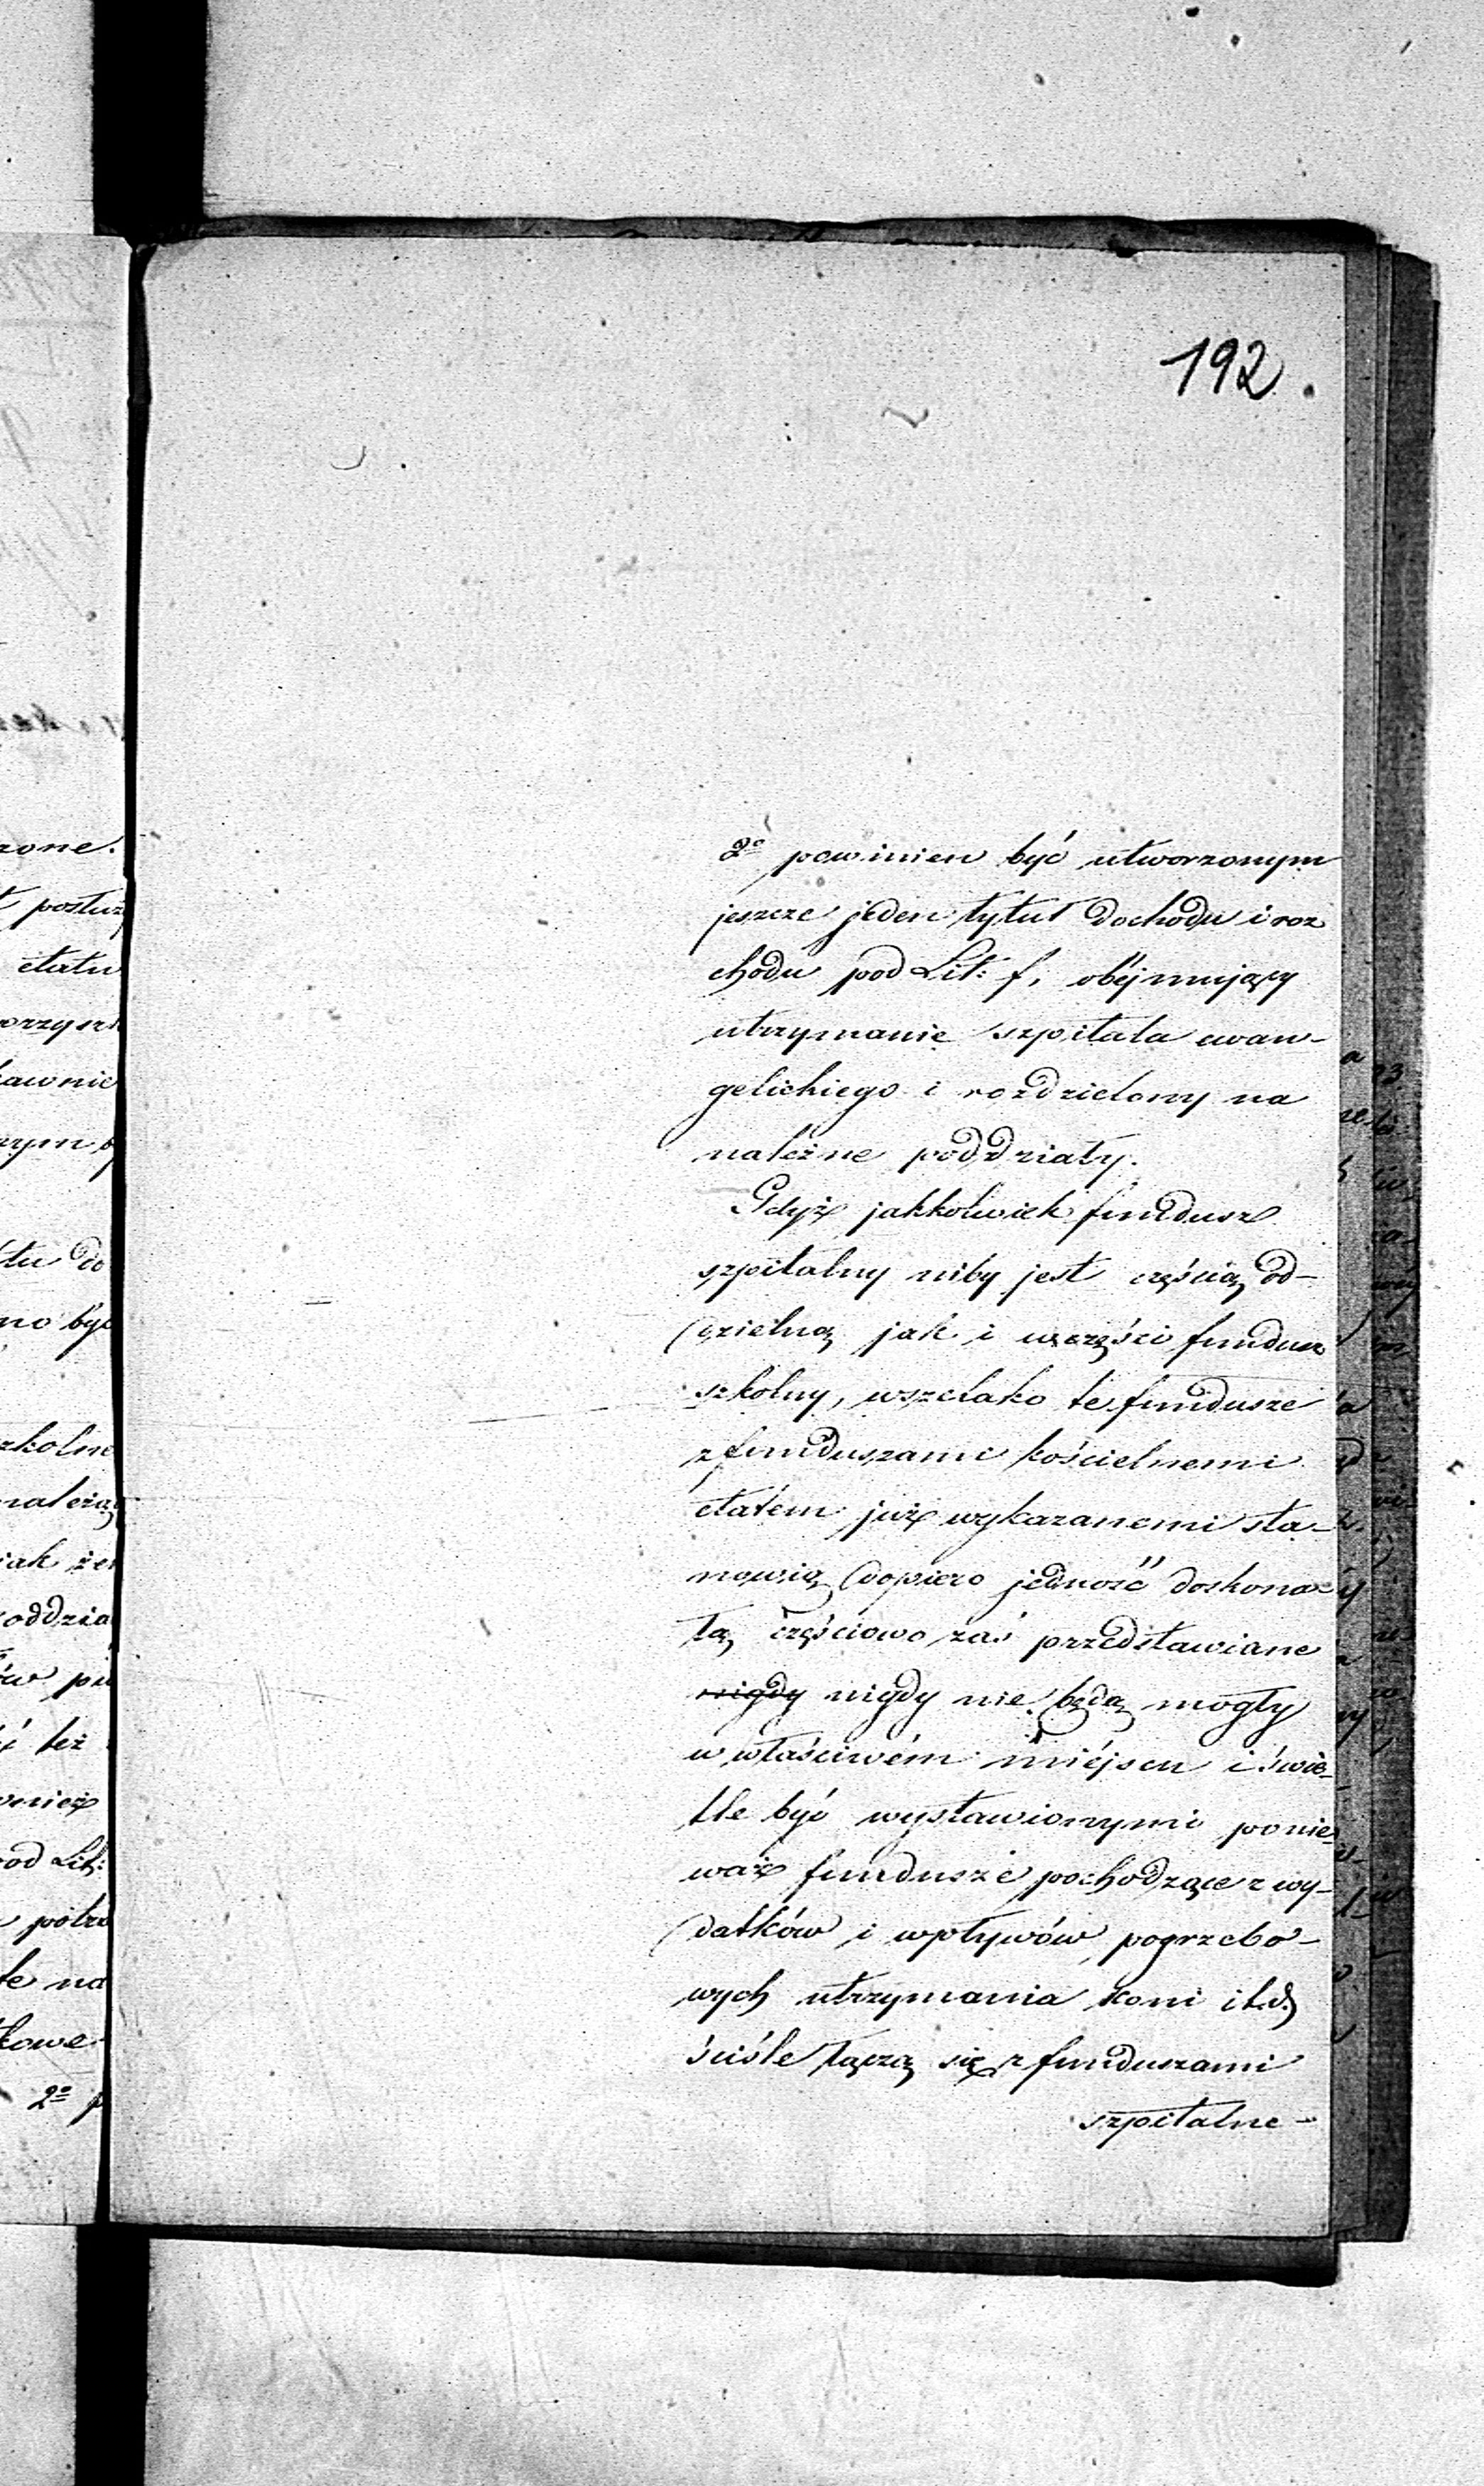 192.
2º powinien być utworzonym
jeszcze jeden tytuł dochodu i roz
chodu pod Lit: f, obéjmujący
utrzymanie szpitala ewan-
gelickiego i rozdzielony na
należne poddziały.
Gdyż jakkolwiek fundusz
szpitalny niby jest częścią od-
dzielną jak i w części fundusz
szkolny, wszelako te fundusze
z funduszami kościelnemi
etatem już wykazanemi sta-
nowią dopiero jedność doskona-
łą, częściowo zaś przedstawiane
nigdy nigdy nie będą mogły
w właściwém miéjscu i świe-
tle być wystawionymi ponie-
waż fundusze pochodzące z wy-
datków i wpływów pogrzebo-
wych utrzymania koni itd.
ściśle łączą się z funduszami
szpitalne-